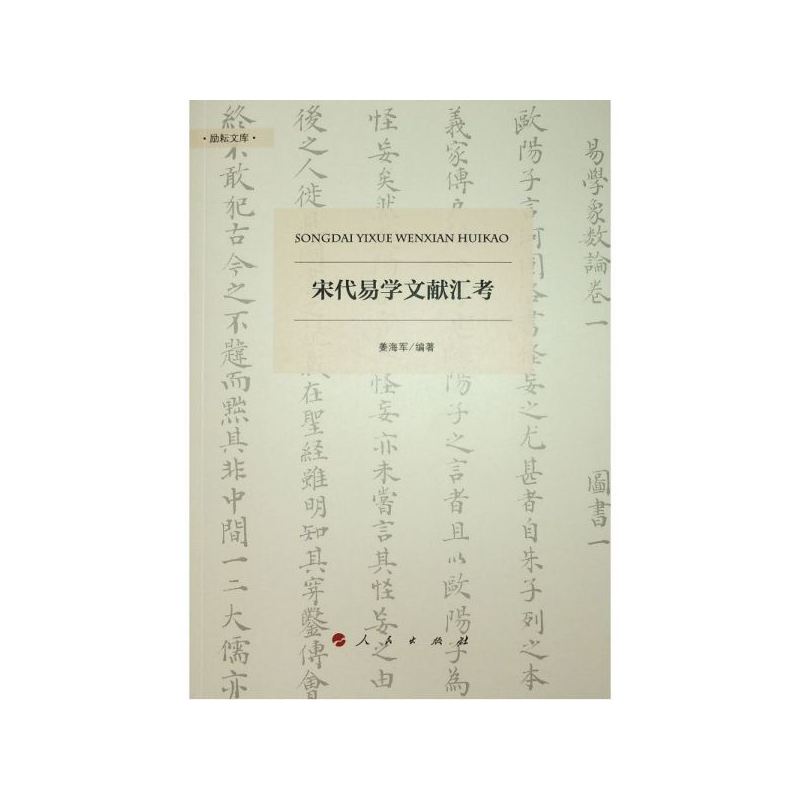 易學象數論卷一 圖書一
歐陽子言河圖洛書怪妄之尤甚者自朱子列之本
義家傳戶
歐陽子之言者且以歐陽子為
怪妄矣然
怪妄亦未嘗言其怪妄之由
後之人徒
在聖經雖明知其穿鑿傅會
終不敢犯古今之不韙而黜其非中間一二大儒亦
·励耘文库·
SONGDAI YIXUE WENXIAN HUIKAO
宋代易学文献汇考
姜海军/编著
人民出版社